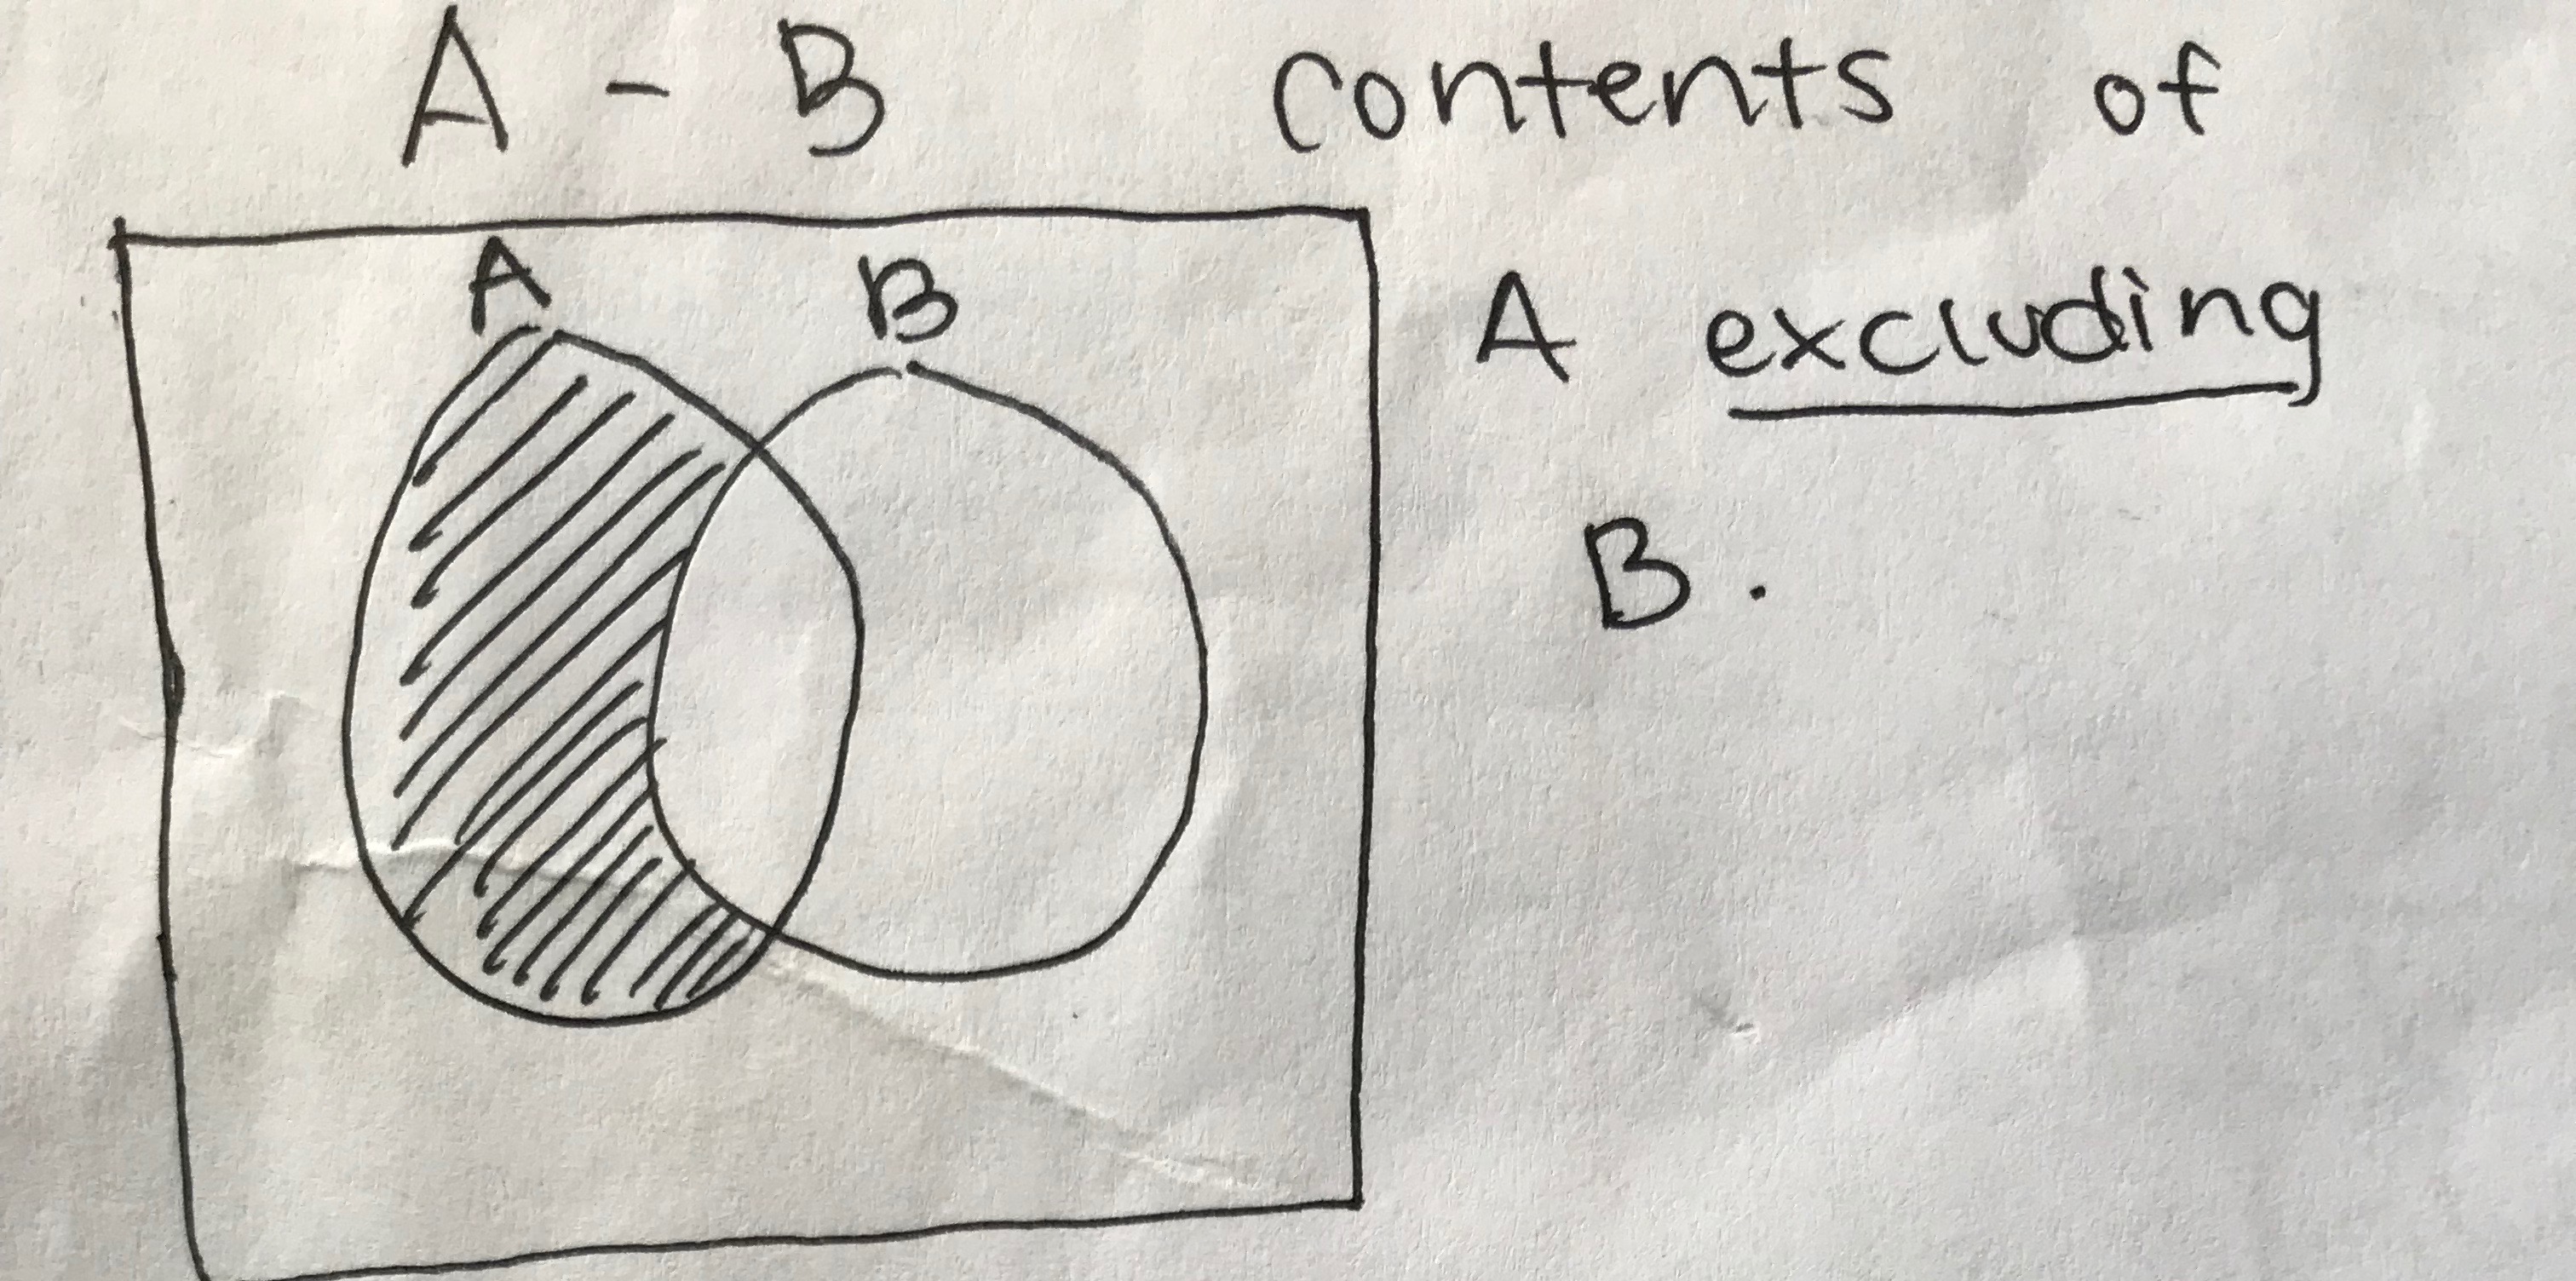 A - B
contents of
A excluding
B.
A
B